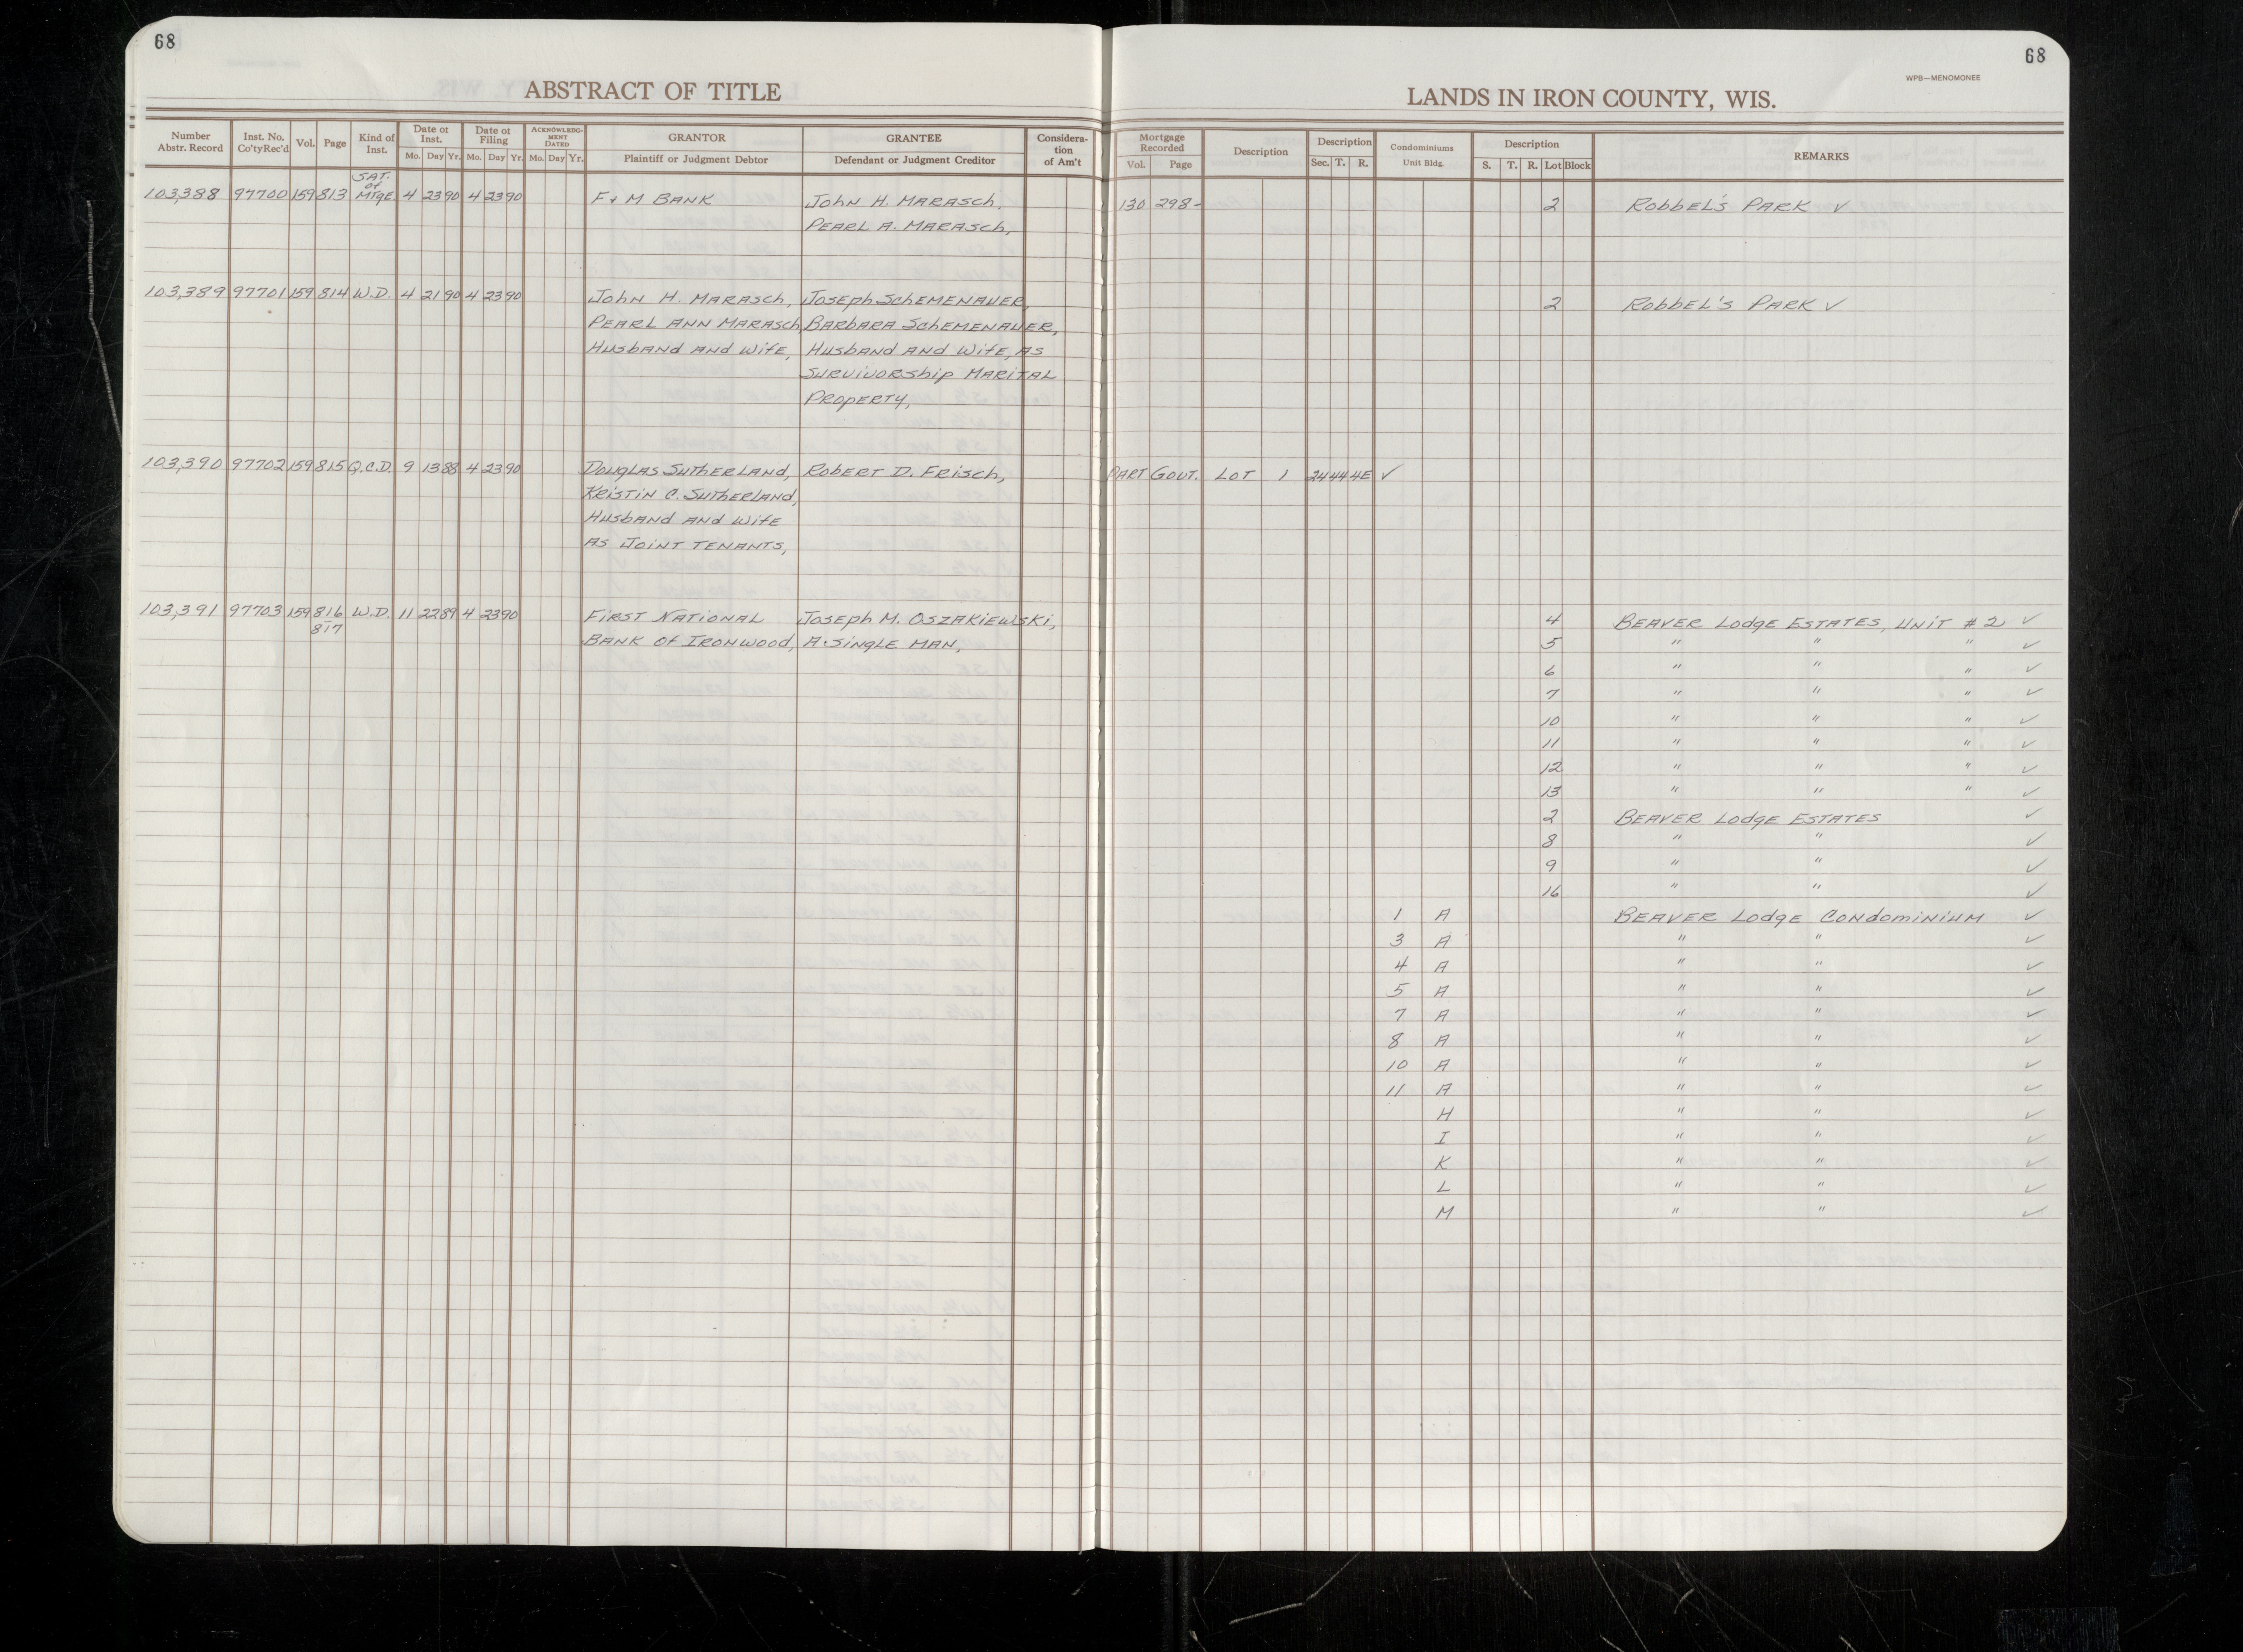 68
68
WPB—MENOMONEE
ABSTRACT OF TITLE
LANDS IN IRON COUNTY, WIS.
Number Abstr. Record | Inst. No. Co'ty Rec'd | Vol. | Page | Kind of Inst. | Date of Inst. Mo. Day Yr. | Date of Filing Mo. Day Yr. | ACKNOWLEDGMENT DATED Mo. Day Yr. | GRANTOR Plaintiff or Judgment Debtor | GRANTEE Defendant or Judgment Creditor | Considera-tion of Am't | Mortgage Recorded Vol. Page | Description | Description Sec. T. R. | Condominiums Unit Bldg. | Description S. T. R. Lot Block | REMARKS
103,388 97700 159 813 SAT. of MTGE. 4 23 90 4 23 90 F & M BANK JOHN H. MARASCH, 130 298- 2 ROBBEL'S PARK ✓
PEARL A. MARASCH,
103,389 97701 159 814 W.D. 4 21 90 4 23 90 JOHN H. MARASCH, JOSEPH SCHEMENAUER, 2 ROBBEL'S PARK ✓
PEARL ANN MARASCH, BARBARA SCHEMENAUER,
HUSBAND AND WIFE, HUSBAND AND WIFE, AS
SURVIVORSHIP MARITAL
PROPERTY,
103,390 97702 159 815 Q.C.D. 9 13 88 4 23 90 DOUGLAS SUTHERLAND, ROBERT D. FRISCH, PART GOVT. LOT 1 24 44 4E ✓
KRISTIN C. SUTHERLAND,
HUSBAND AND WIFE
AS JOINT TENANTS,
103,391 97703 159 816-817 W.D. 11 22 89 4 23 90 FIRST NATIONAL JOSEPH M. OSZAKIEWSKI, 4 BEAVER LODGE ESTATES, UNIT #2 ✓
BANK OF IRONWOOD, A SINGLE MAN, 5 " " " ✓
6 " " " ✓
7 " " " ✓
10 " " " ✓
11 " " " ✓
12 " " " ✓
13 " " " ✓
2 BEAVER LODGE ESTATES ✓
8 " " ✓
9 " " ✓
16 " " ✓
1 A BEAVER LODGE CONDOMINIUM ✓
3 A " " ✓
4 A " " ✓
5 A " " ✓
7 A " " ✓
8 A " " ✓
10 A " " ✓
11 A " " ✓
H " " ✓
I " " ✓
K " " ✓
L " " ✓
M " " ✓